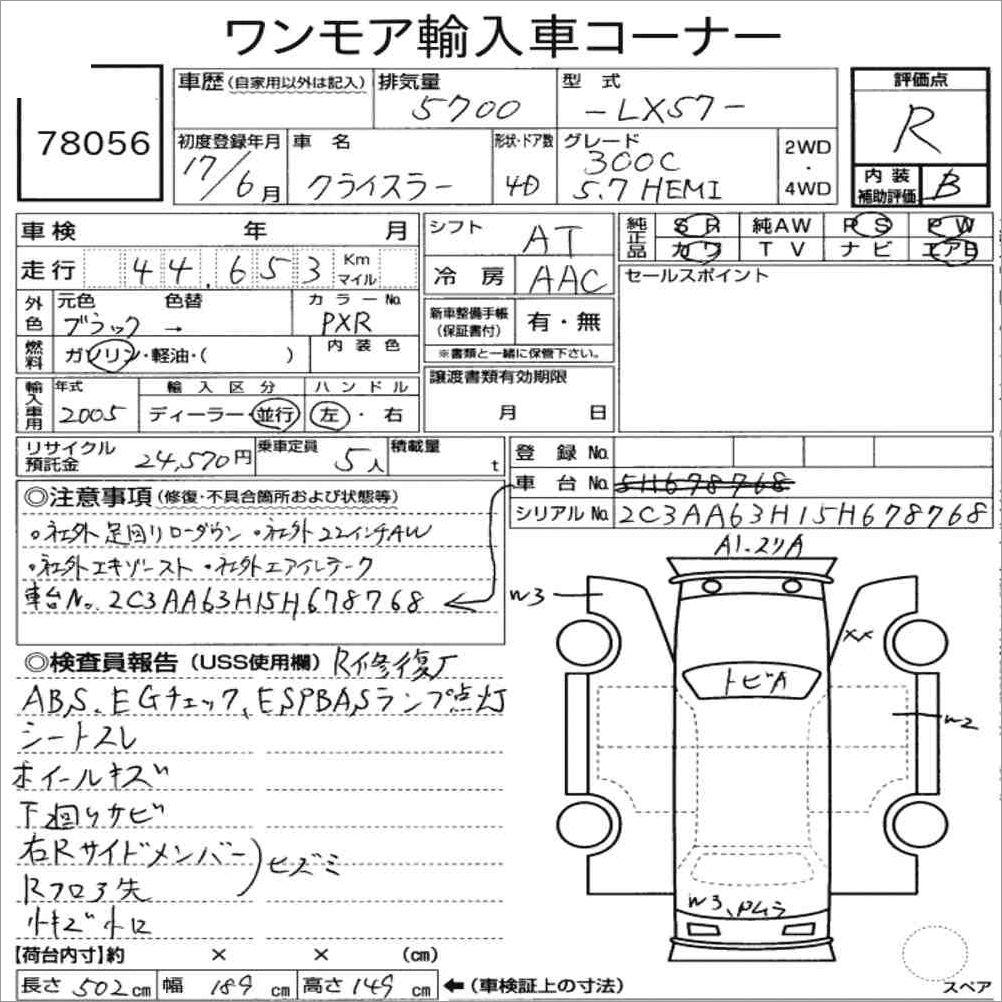 ワンモア輸入車コーナー
78056
車歴(自家用以外は記入) 排気量 5700 型式 -LX57- 評価点 R
初度登録年月 17/6月 車名 クライスラー 形状・ドア数 4D グレード 300C 5.7 HEMI 2WD・4WD 内装補助評価 B
車検 年 月 シフト AT 純正品 SR 純AW PS PW
走行 44.653 Km マイル 冷房 AAC カワ TV ナビ エアB
外色 元色 ブラック → 色替 カラーNo. PXR 新車整備手帳(保証書付) 有・無 セールスポイント
燃料 ガソリン・軽油・( ) 内装色 ※書類と一緒に保管下さい。
輸入車用 年式 2005 輸入区分 ディーラー・並行 ハンドル 左・右 譲渡書類有効期限 月 日
リサイクル預託金 24,570円 乗車定員 5人 積載量 t 登録No.
◎注意事項(修復・不具合箇所および状態等) 車台No. 5H678768
シリアルNo. 2C3AA63H15H678768
。社外足回りローダウン 。社外22インチAW
。社外エキゾースト 。社外エアインテーク
車台No. 2C3AA63H15H678768
A1.スリA
W3
XX
トビA
W2
W3、
◎検査員報告(USS使用欄) R修復
ABS、EGチェック、ESPBASランプ点灯
シートスレ
ホイールキズ
下廻りサビ
右Rサイドメンバー
Rフロア先
ヒズミ
小キズ小凹
【荷台内寸】約 × × (cm)
長さ 502cm 幅 189cm 高さ 149cm ←(車検証上の寸法)
スペア